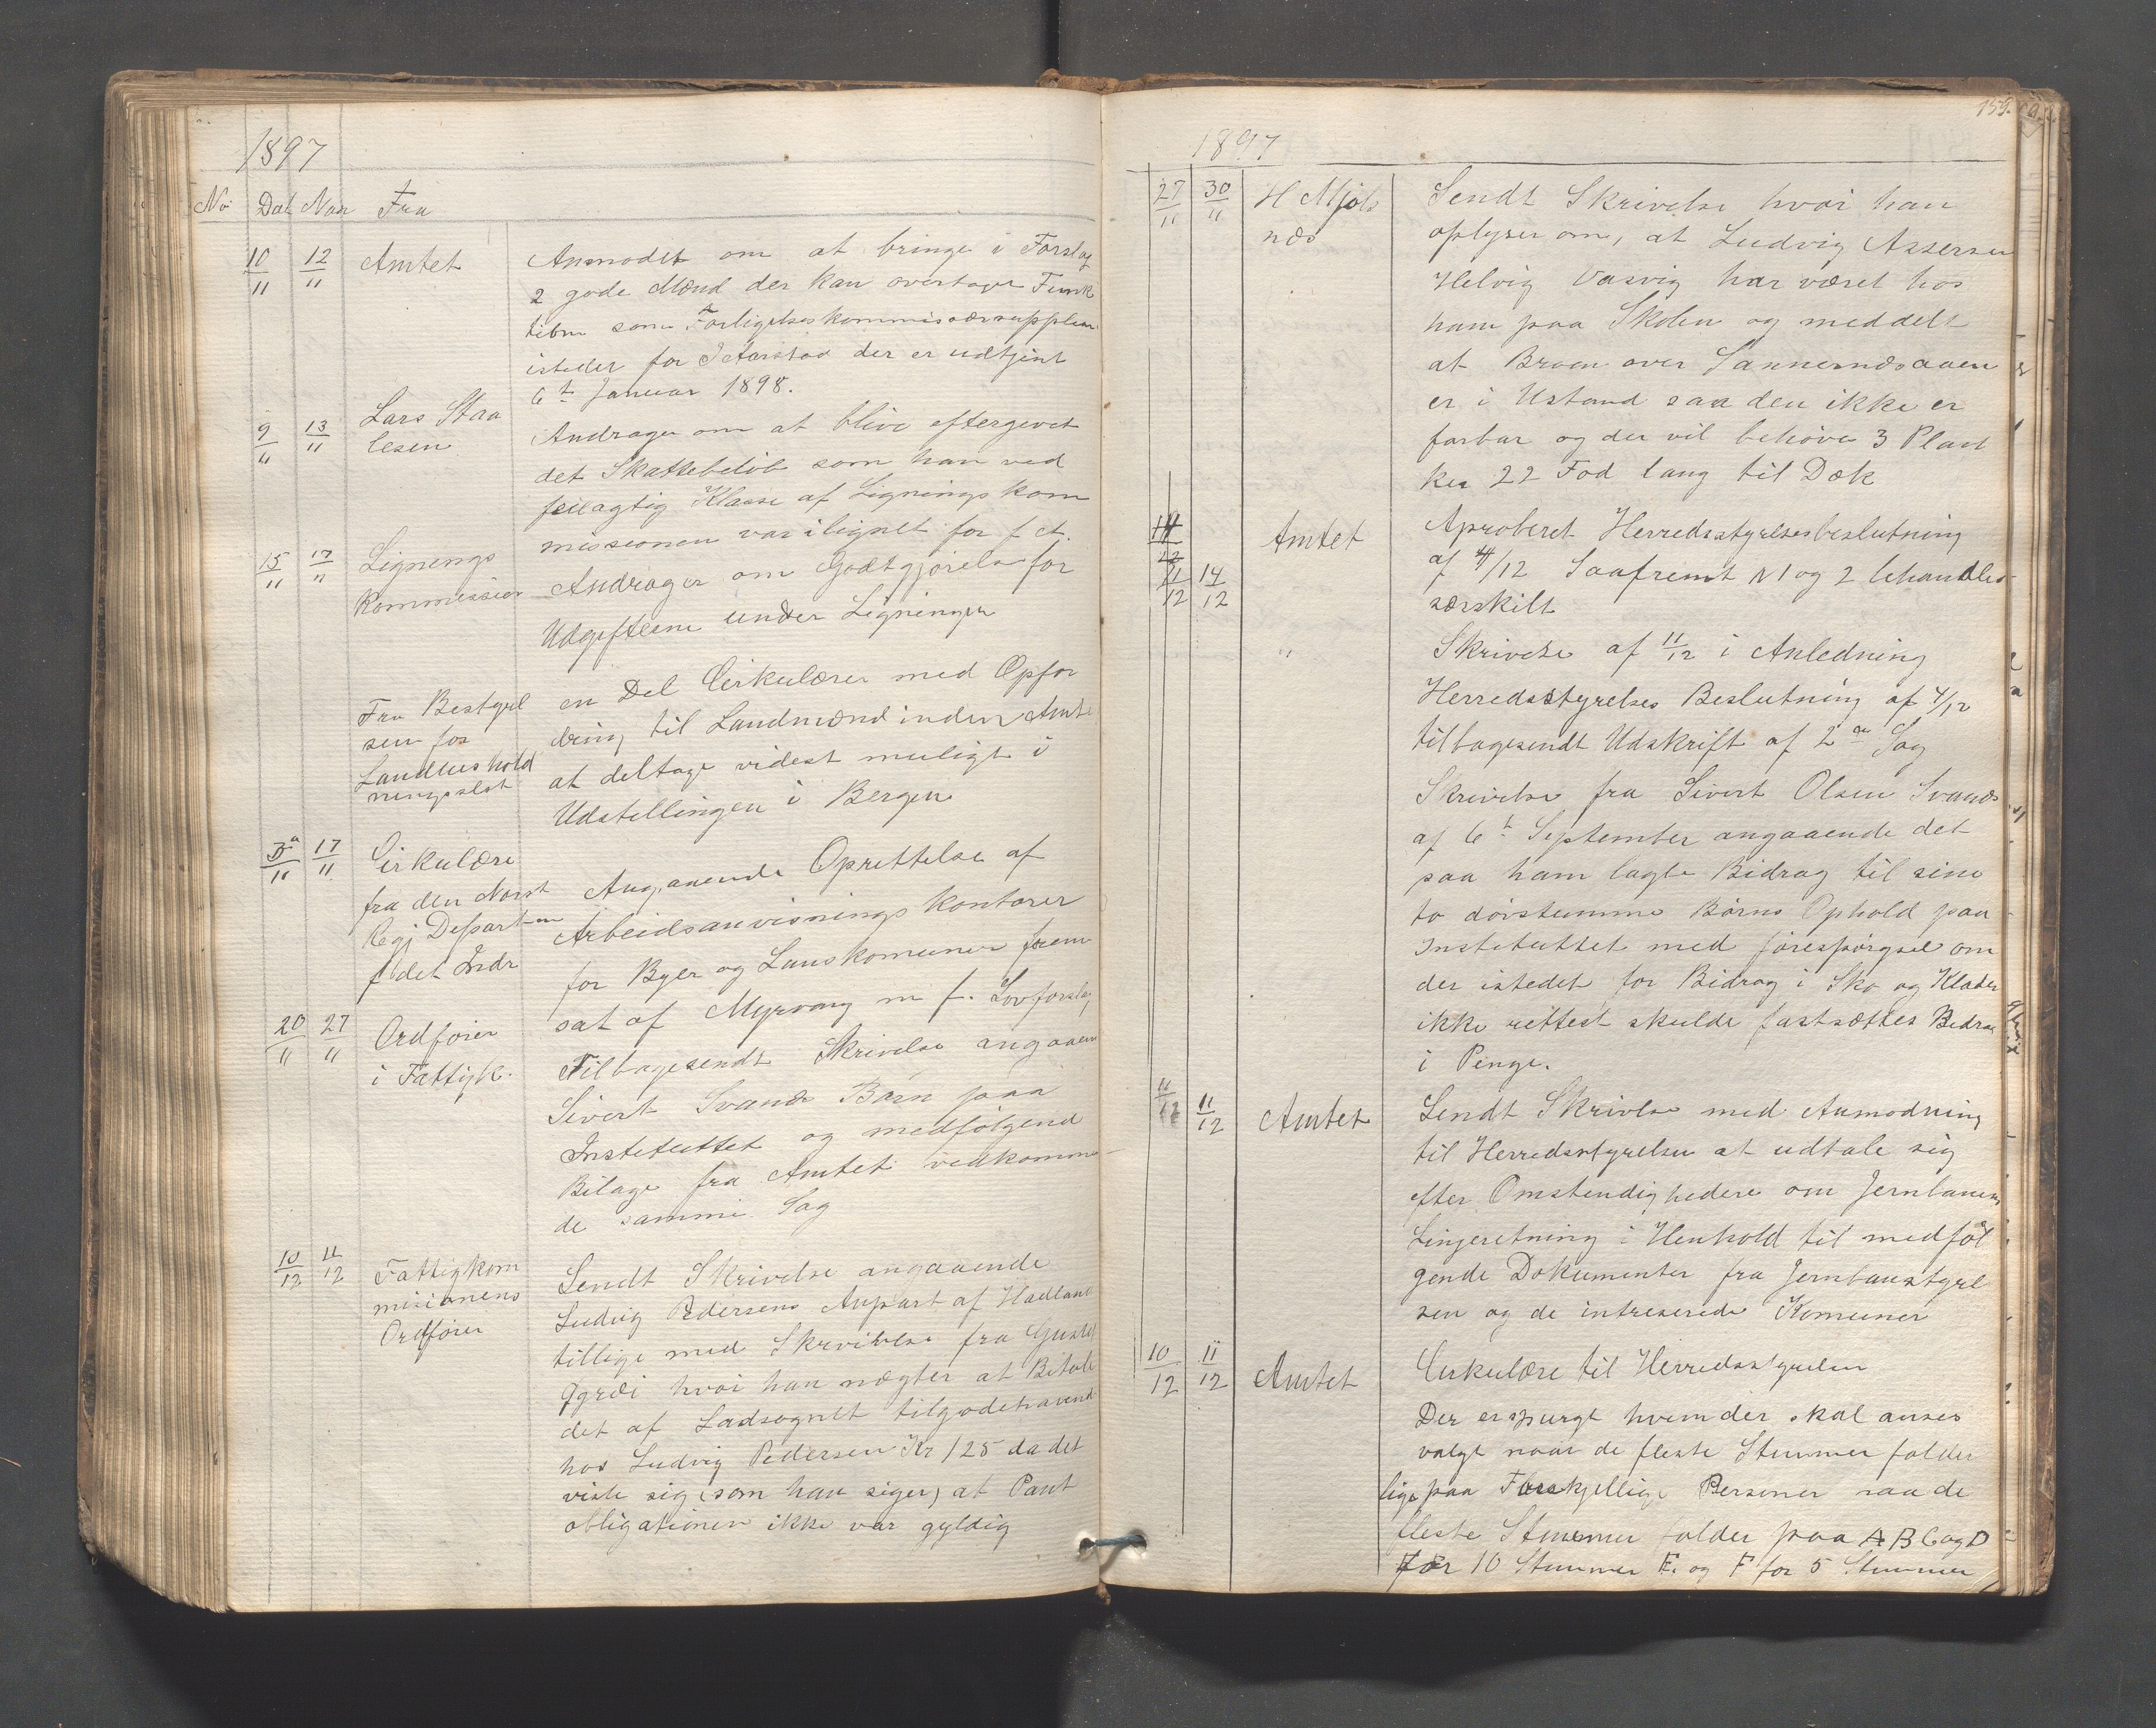 1897
No Dat Naar Fra
10/11 12/11 Amtet
Anmodet om at bringe i Forslag
2 gode Mænd der kan overtage Funk
tibne som Forligelseskommisærsupplean
isteder for J Aarstad der er udtjent
6t Januar 1898.
9/11 13/11 Lars Staa
lesen
Andrager om at blive eftergivet
det Skattebeløb som han ved
feilagtig Klasse af Lignings kom
missionen var ilignet for f. ct.
15/11 17/11 Lignings
Kommission
Andrager om Godtgjørelse for
Udgifterne under Ligningen
Fra Bestyrel
sen for
Landhushold
ningsselst
en Del Cirkulærer med Opfor
dring til Landmænd inden Amte
at deltage videst muligt i
Udstellingen i Bergen
17/11 Cirkulære
fra den Norst
Regj Depart-en
f det Indr
Angaaende Oprettelse af
Arbeidsanvisnings kontorer
for Byer og Lanskomuner frem
sat af Myrvang m f. Lovforslag
20/11 27/11 Ordfører
i Fattigk.
Tilbagesendt Skrivelse angaaen
Sivert Svanes Børn paa
Institutet og medfølgend
Bilage fra Amtet vedkomme
de samme Sag
10/12 11/12 Fattigkom
misionens
Ordfører
Sendt Skrivelse angaaende
Ludvig Pedersens Anpart af Hadland
tillige med Skrivelse fra Gustaf
hvor han nægter at Bitale
det af Ladsognet tilgodehavend
hos Ludvig Pedersen Kr 125 da det
viste sig (som han siger) at Pant
obligationen ikke var gyldig
155.
1897
27/11 30/11 H Mjøls
næs
Sendt Skrivelse hvor han
oplyser om, at Ludvig Assersen
Helvig Vasvig har været hos
ham paa Skolen og meddelt
at Broen over Sannernæsaaen
er i Ustand saa den ikke er
farbar og der vil behøve 3 Plan
ker 22 Fod lang til Dæk
Amtet
Aproberet Herredsstyrelsesbeslutning
af 4/12 Saafremt N 1 og 2 behandles
særskilt
11/12 14/12
"
Skrivelse af 11/12 i Anledning
Herredsstyrelses Beslutning af 4/12
tilbagesendt Udskrift af 2en Sag
Skrivelse fra Sivert Olsen Svanes
af 6t September angaaende det
paa ham lagte Bidrag til sine
to døvstumme Børns Ophold paa
Institutet med forespørgsel om
der istedet for Bidrag i Sko og Klæder
ikke rettest skulde fastsættes Bidra
i Penge.
11/12 11/12 Amtet
Sendt Skrivlse med Anmodning
til Herredsstyrelsen at udtale sig
efter Omstendighedere om Jernbanens
Linjeretning i Henhold til medføl
gende Dokumenter fra Jernbanstyrel
sen og de intreserede Komuner
10/12 11/12 Amtet
Cirkulære til Herredsstyrelsen
Der er spurgt hvem der skal anses
valgt naar de fleste Stemmer falder
lige paa Forskjellige Personer saa de
fleste Stemmer falder paa A B C og D
før 10 Stemmer E. og F for 5 Stemmer